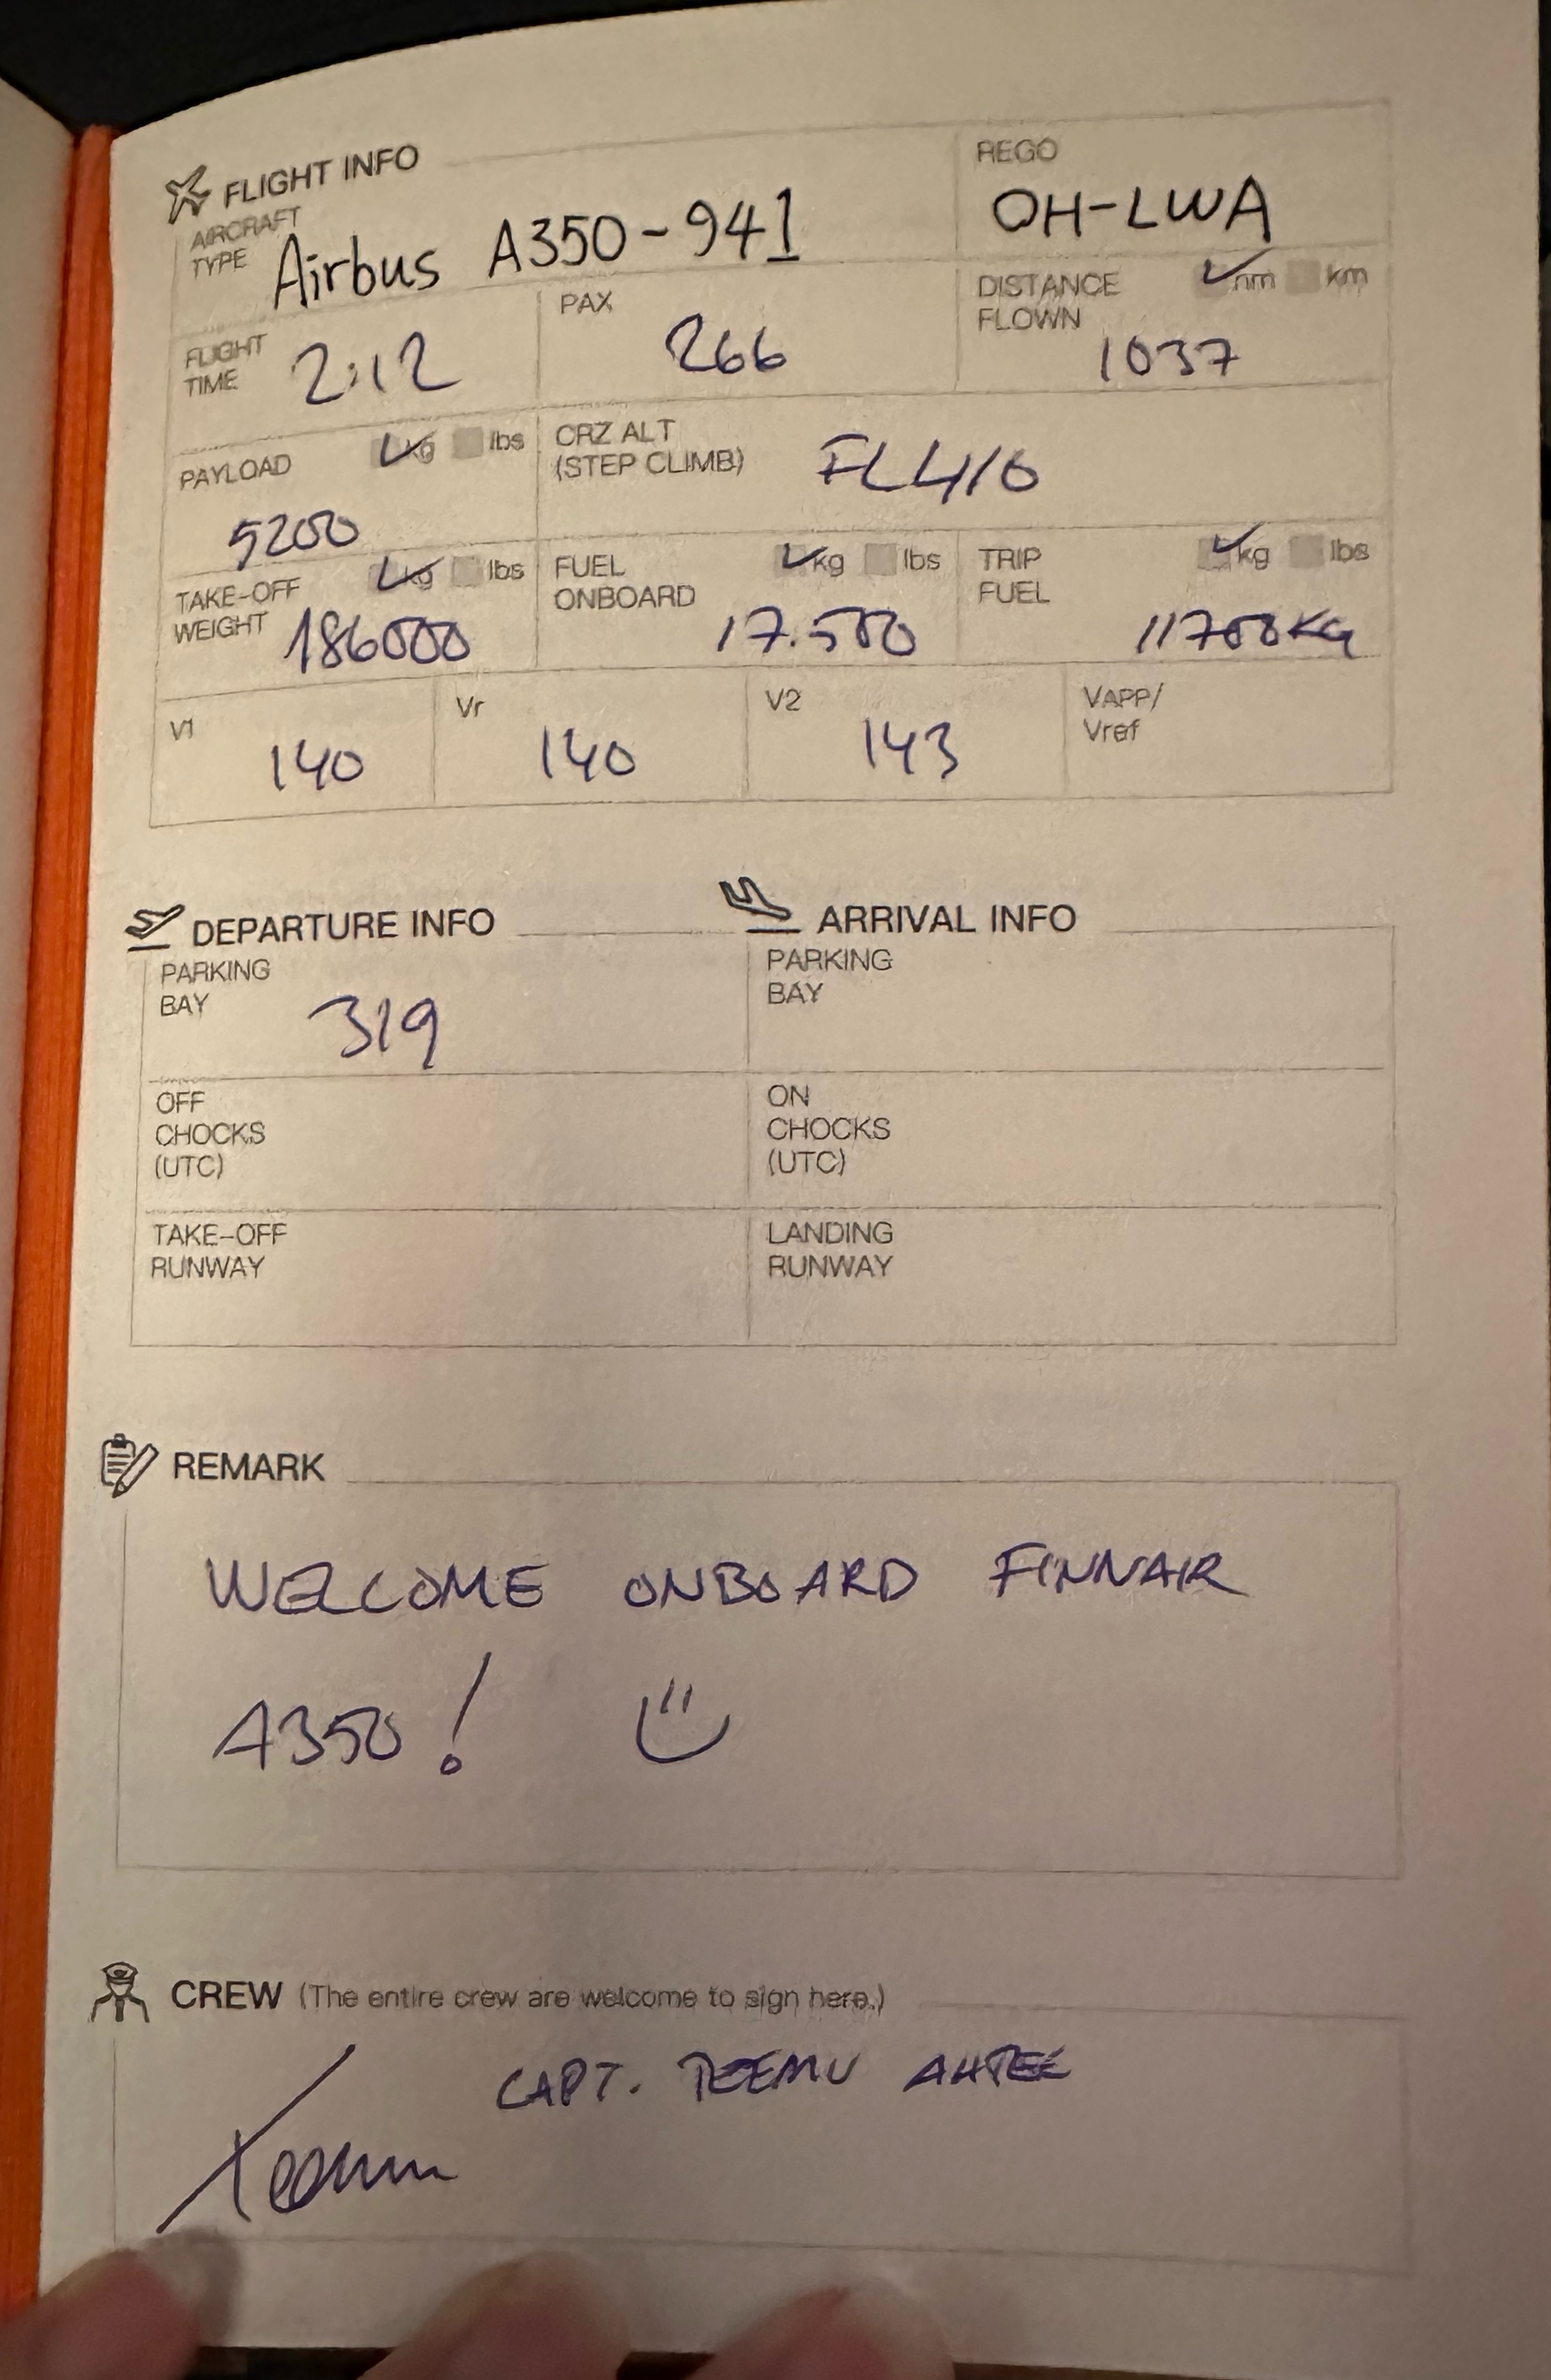 FLIGHT INFO
AIRCRAFT TYPE Airbus A350-941
REGO OH-LWA
FLIGHT TIME 2:12
PAX 266
DISTANCE FLOWN nm km 1037
PAYLOAD kg lbs 5200
CRZ ALT (STEP CLIMB) FL410
TAKE-OFF WEIGHT kg lbs 186000
FUEL ONBOARD kg lbs 17.500
TRIP FUEL kg lbs 11700KG
V1 140
Vr 140
V2 143
VAPP/ Vref
DEPARTURE INFO
PARKING BAY 319
OFF CHOCKS (UTC)
TAKE-OFF RUNWAY
ARRIVAL INFO
PARKING BAY
ON CHOCKS (UTC)
LANDING RUNWAY
REMARK
WELCOME ONBOARD FINNAIR
A350!
CREW (The entire crew are welcome to sign here.)
CAPT. TEEMU AHTEE
Teemu